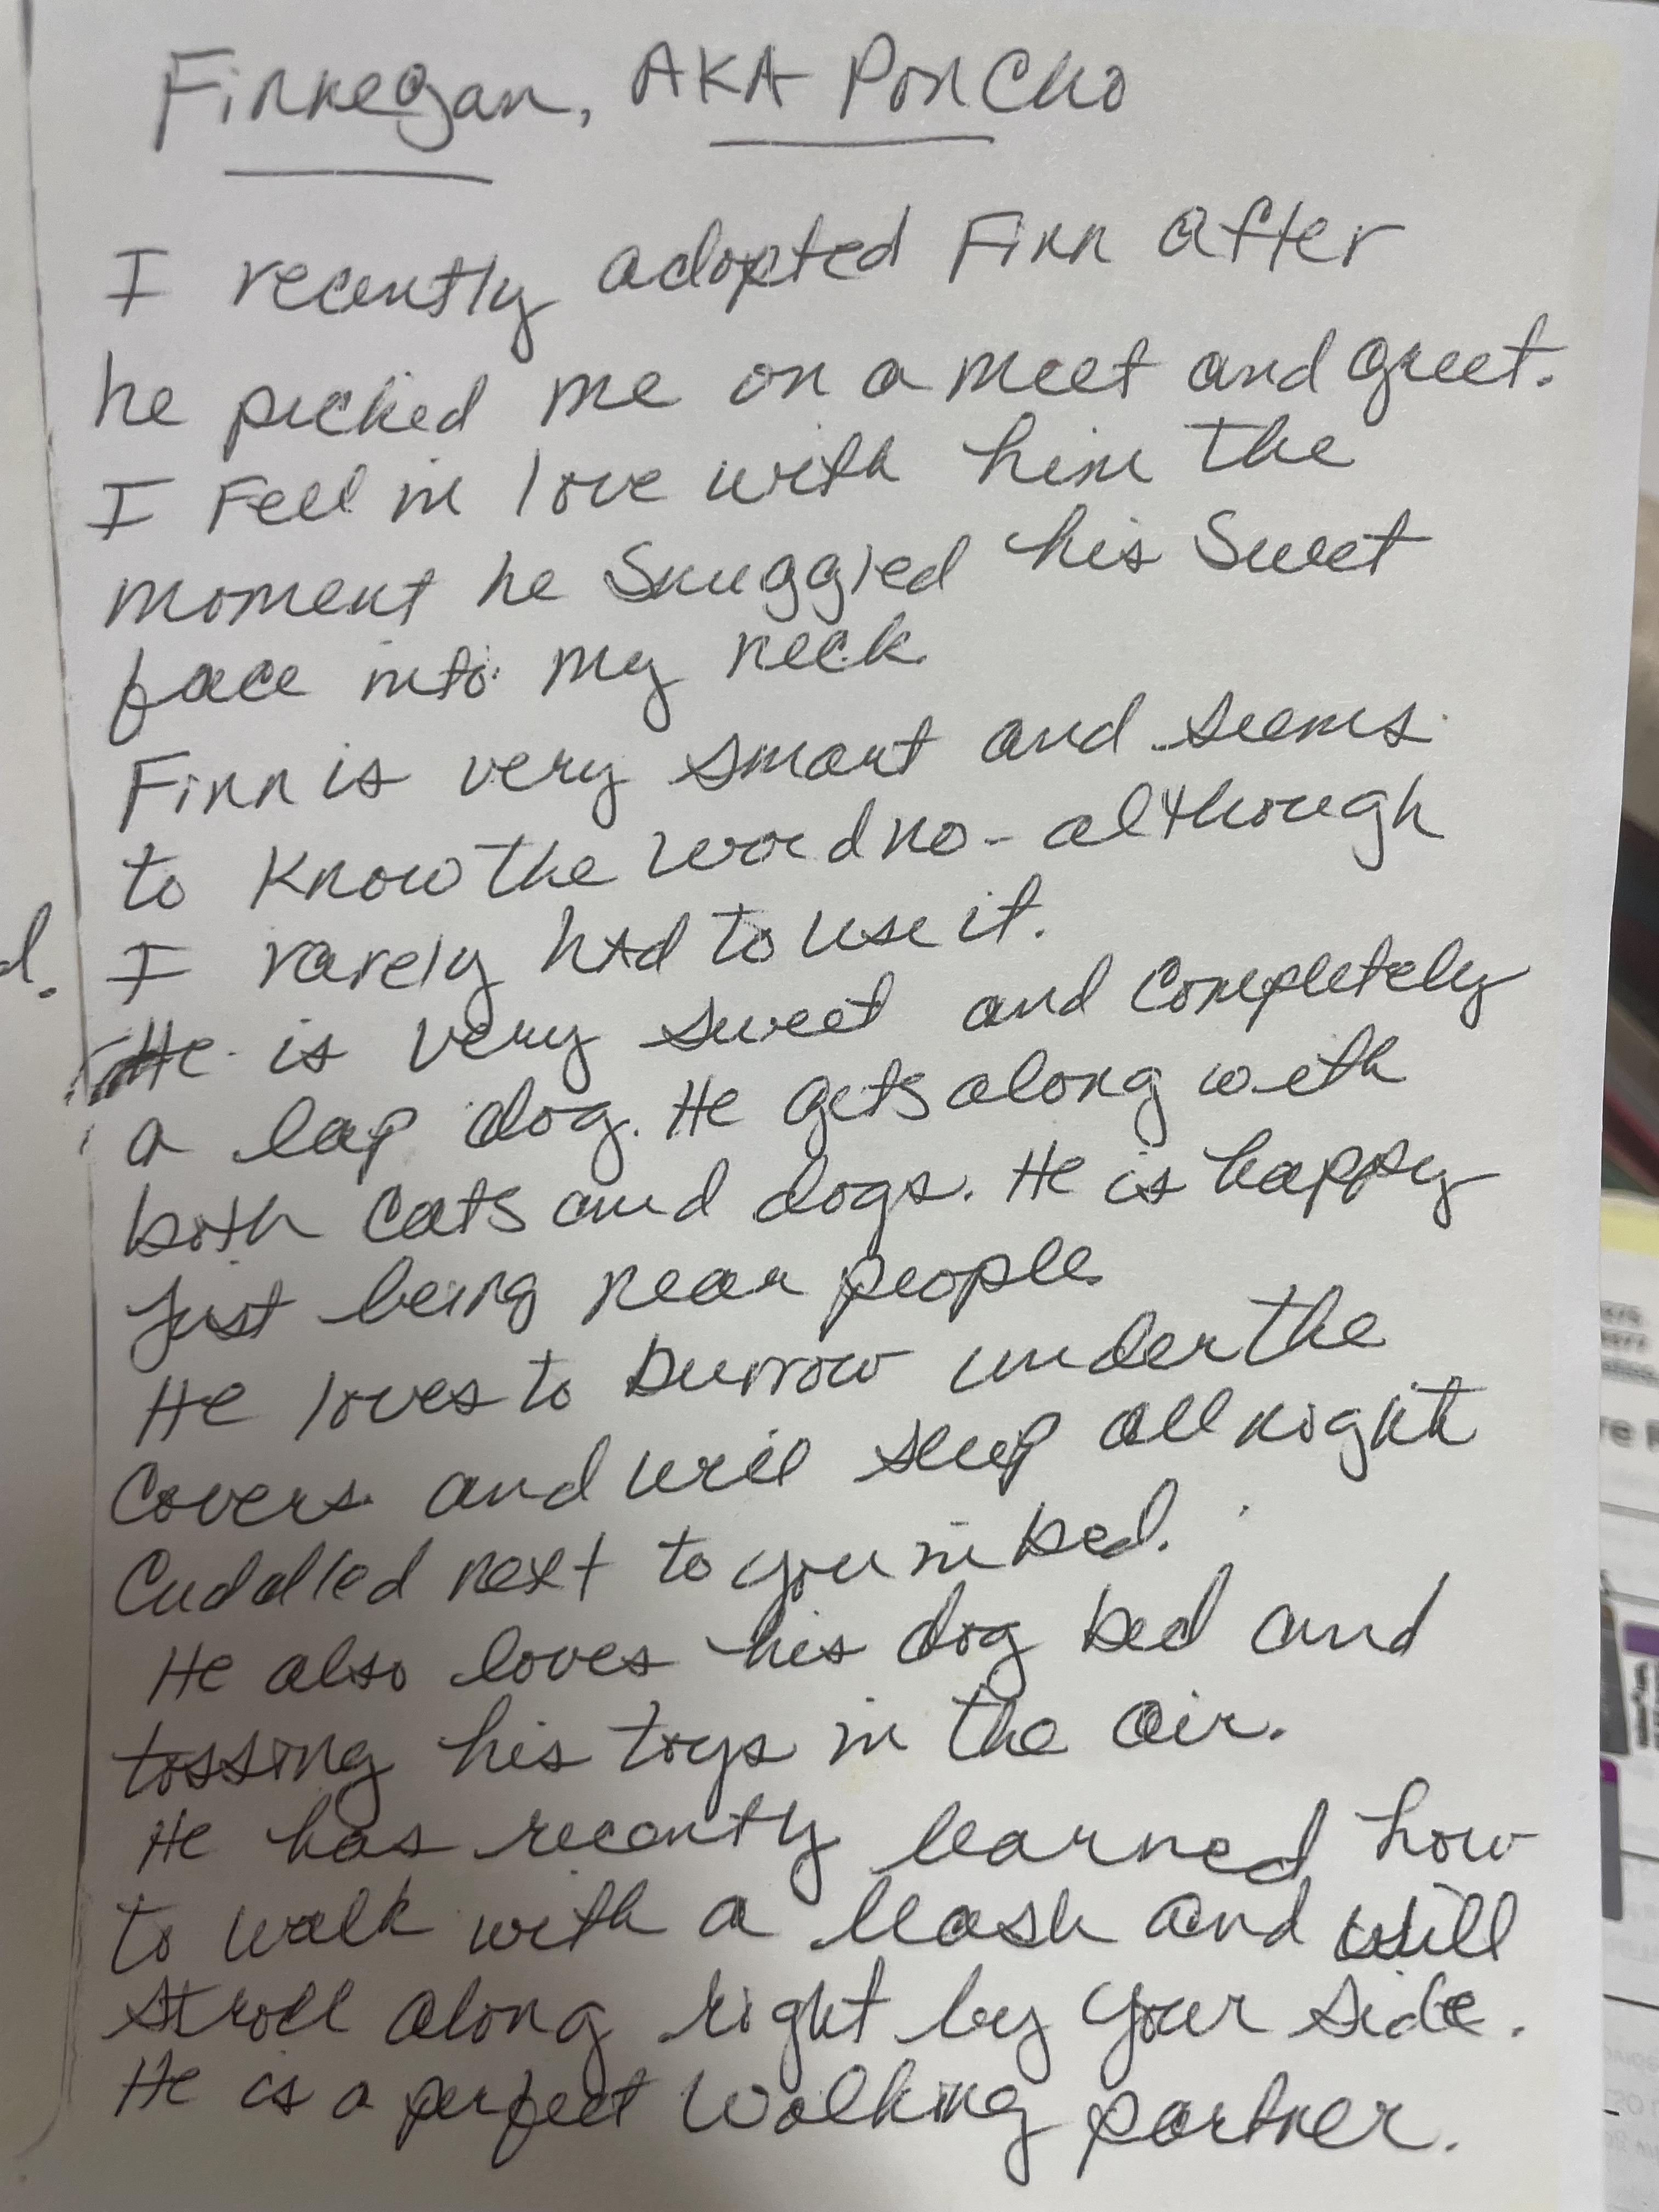 Finnegan, AKA Poncho
I recently adopted Finn after
he picked me on a meet and greet.
I Fell in love with him the
moment he Snuggled his Sweet
face into my neck.
Finn is very smart and seems
to know the word no - although
I rarely had to use it.
d.
He is very sweet and completely
a lap dog. He gets along with
both cats and dogs. He is happy
Just being near people.
He loves to burrow under the
Covers and will sleep all night
Cuddled next to you in bed.
He also loves his dog bed and
tossing his toys in the air.
He has recently learned how
to walk with a leash and will
stroll along right by your side.
He is a perfect walking partner.